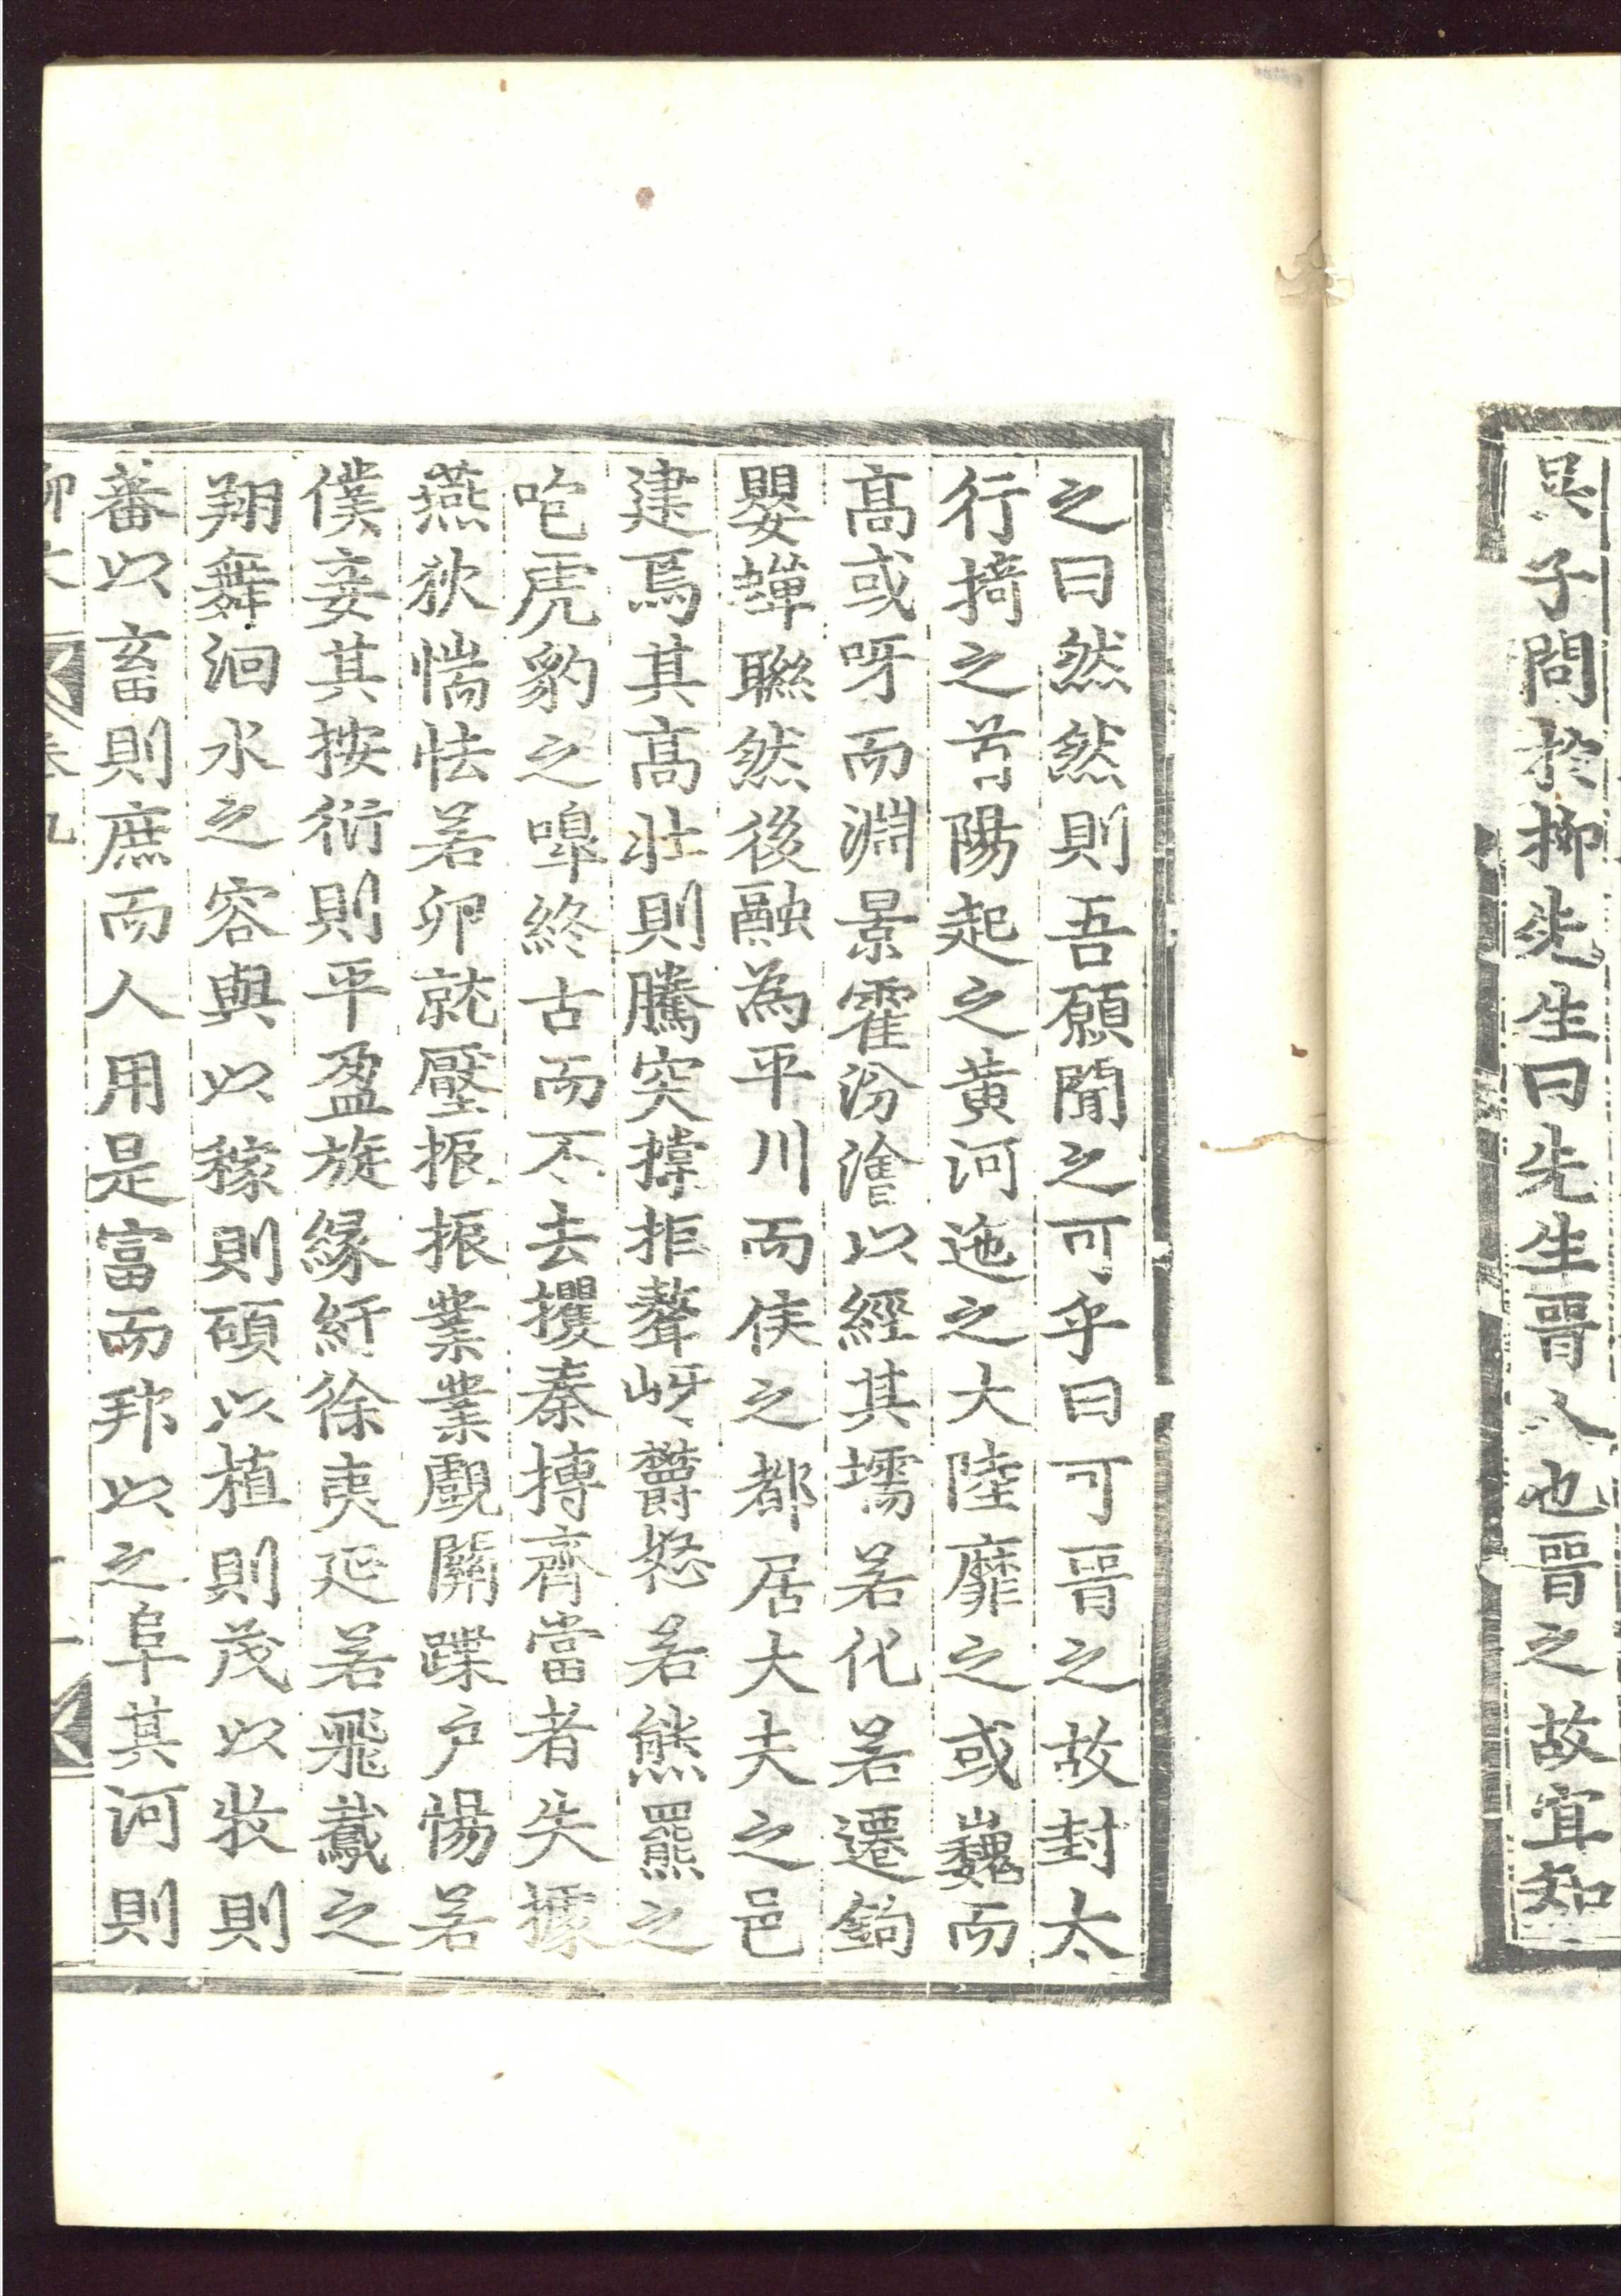 吳子問於柳先生曰先生晉人也晉之故宜知
之曰然然則吾願聞之可乎曰可晉之故封太
行掎之首陽起之黃河迤之大陸靡之或巍而
高或呀而淵景霍汾澮以經其壖若化若遷鉤
嬰蟬聯然後融為平川而侯之都居大夫之邑
建焉其高壯則騰突撐拒聱岈欝怒若熊羆之
咆虎豹之嘷終古而不去攫秦搏齊當者失據
燕狄惴怯若卵就壓振振業業覷關蹀户惕若
僕妾其按衍則平盈旋緣紆徐夷延若飛鳶之
翔舞洄水之容與以稼則碩以植則茂以牧則
蕃以畜則庶而人用是富而邦以之阜其河則
柳文 卷九